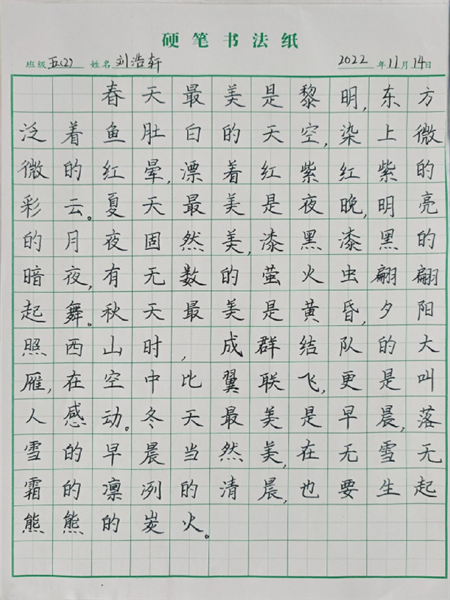 硬笔书法纸
班级 五(2) 姓名 刘浩轩 2022 年 11 月 14 日
春天最美是黎明,东方
泛着鱼肚白的天空,染上微
微的红晕,漂着红紫红紫的
彩云。夏天最美是夜晚,明亮
的月夜固然美,漆黑漆黑的
暗夜,有无数的萤火虫翩翩
起舞。秋天最美是黄昏,夕阳
照西山时,成群结队的大
雁,在空中比翼联飞,更是叫
人感动。冬天最美是早晨,落
雪的早晨当然美,在无雪无
霜的凛冽的清晨,也要生起
熊熊的炭火。